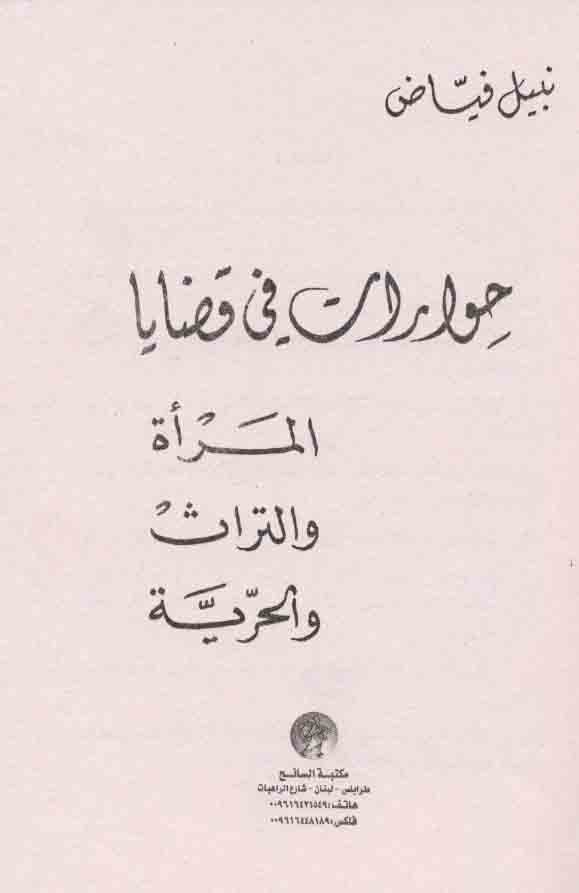 نبيل فيّاض
حوارات في قضايا
المرأة
والتراث
والحرّيّة
مكتبة السائح
طرابلس - لبنان - شارع الراهبات
هاتف: ٠٠٩٦١٦٤٣١٥٤٩
فاكس: ٠٠٩٦١٦٤٤٨١٨٩